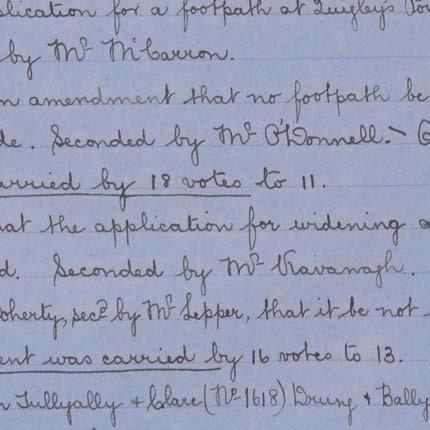 plication for a footpath at Quigley's Po
by Mr McCarron.
n amendment that no footpath be
de. Seconded by Mr O'Donnell. —
arried by 18 votes to 11.
at the application for widening a
d. Seconded by Mr Kavanagh.
oherty, secd by Mr Lepper, that it be not
ent was carried by 16 votes to 13.
n Tullyally + Clare (No 1618) Drung + Bally